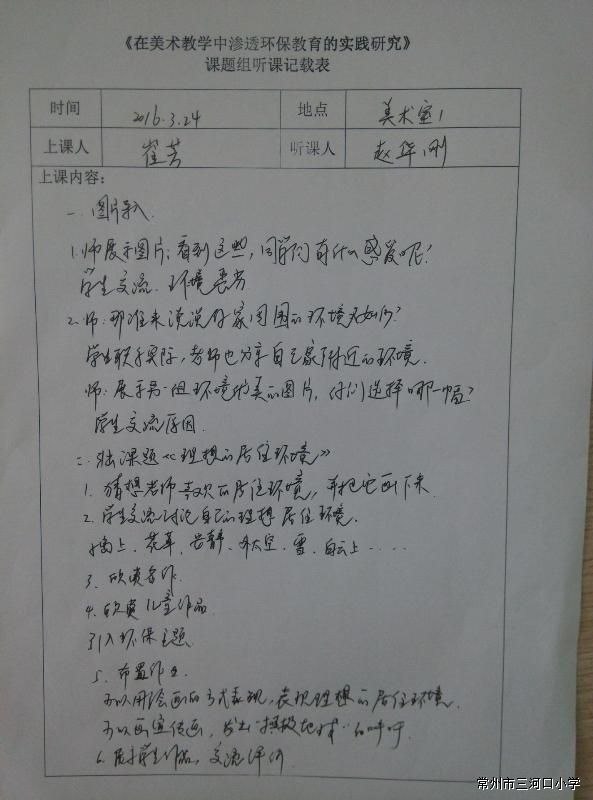 《在美术教学中渗透环保教育的实践研究》
课题组听课记载表
时间 2016.3.24 地点 美术室1
上课人 崔芳 听课人 赵华刚
上课内容：
一、图片导入
1.师展示图片：看到这些，同学们有什么感受呢？
学生交流：环境恶劣
2.师：那谁来说说你家周围的环境又如何？
学生联系实际，老师也分享自己家附近的环境．
师：展示另一组环境优美的图片，你们选择哪一幅？
学生交流原因．
二、出课题《理想的居住环境》
1、猜想老师喜欢的居住环境，并把它画下来．
2、学生交流讨论自己的理想居住环境．
海上、花草、安静、外太空、雪、白云上．．．．
3、欣赏名作．
4、欣赏儿童作品
引入环保主题
5、布置作业
可以用绘画的方式表现，表现理想的居住环境．
可以画宣传画，发出"拯救地球"的呼吁
6、展示学生作品，交流评价
常州市三河口小学